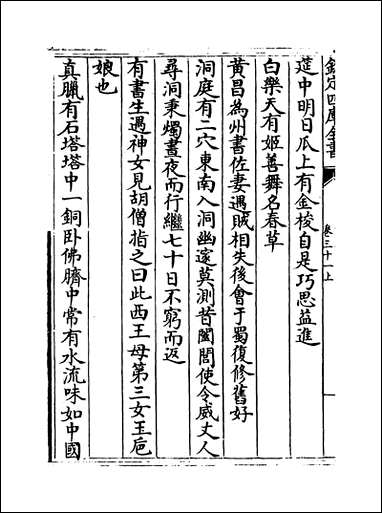 欽定四庫全書
卷三十一上
莚中明日瓜上有金梭自是巧思益進
白樂天有姬善舞名春草
黄昌為州書佐妻遇賊相失後會于蜀復修舊好
洞庭有二穴東南入洞幽邃莫測昔闔閭使令威丈人
尋洞秉燭晝夜而行繼七十日不窮而返
有書生遇神女見胡僧指之曰此西王母第三女玉巵
娘也
真臘有石塔塔中一銅卧佛臍中常有水流味如中國